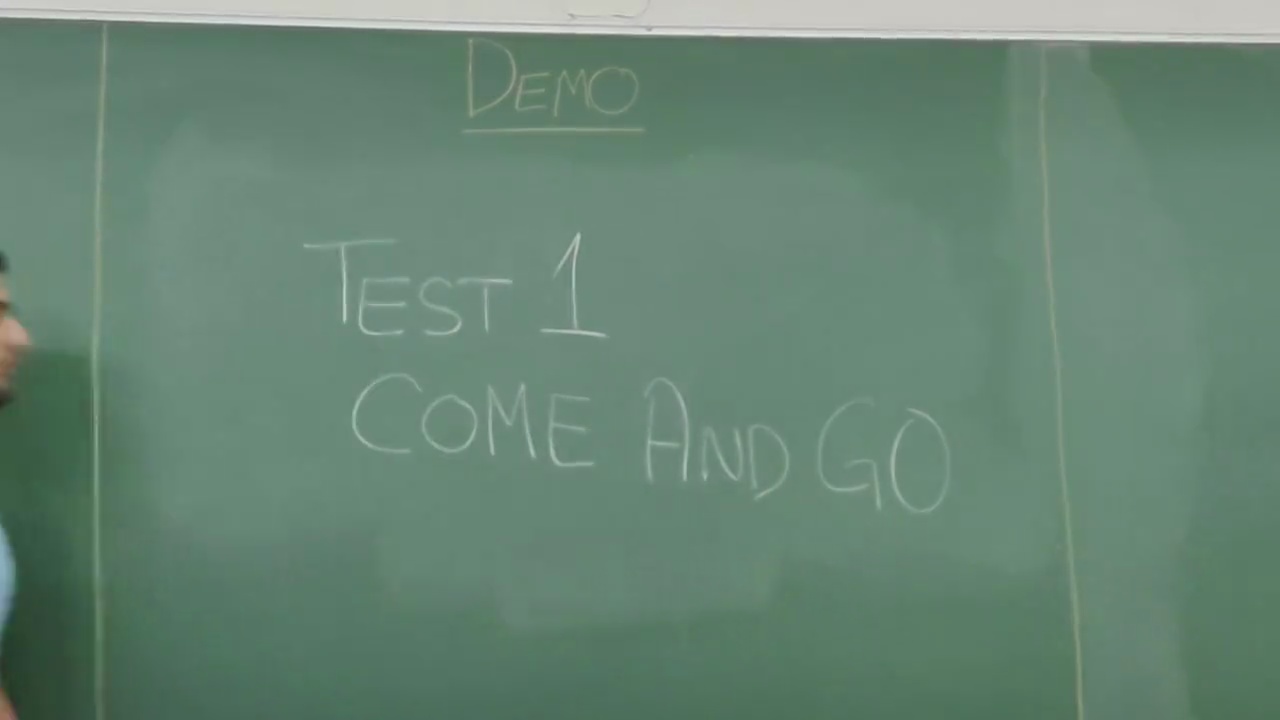 DEMO
TEST 1
COME AND GO